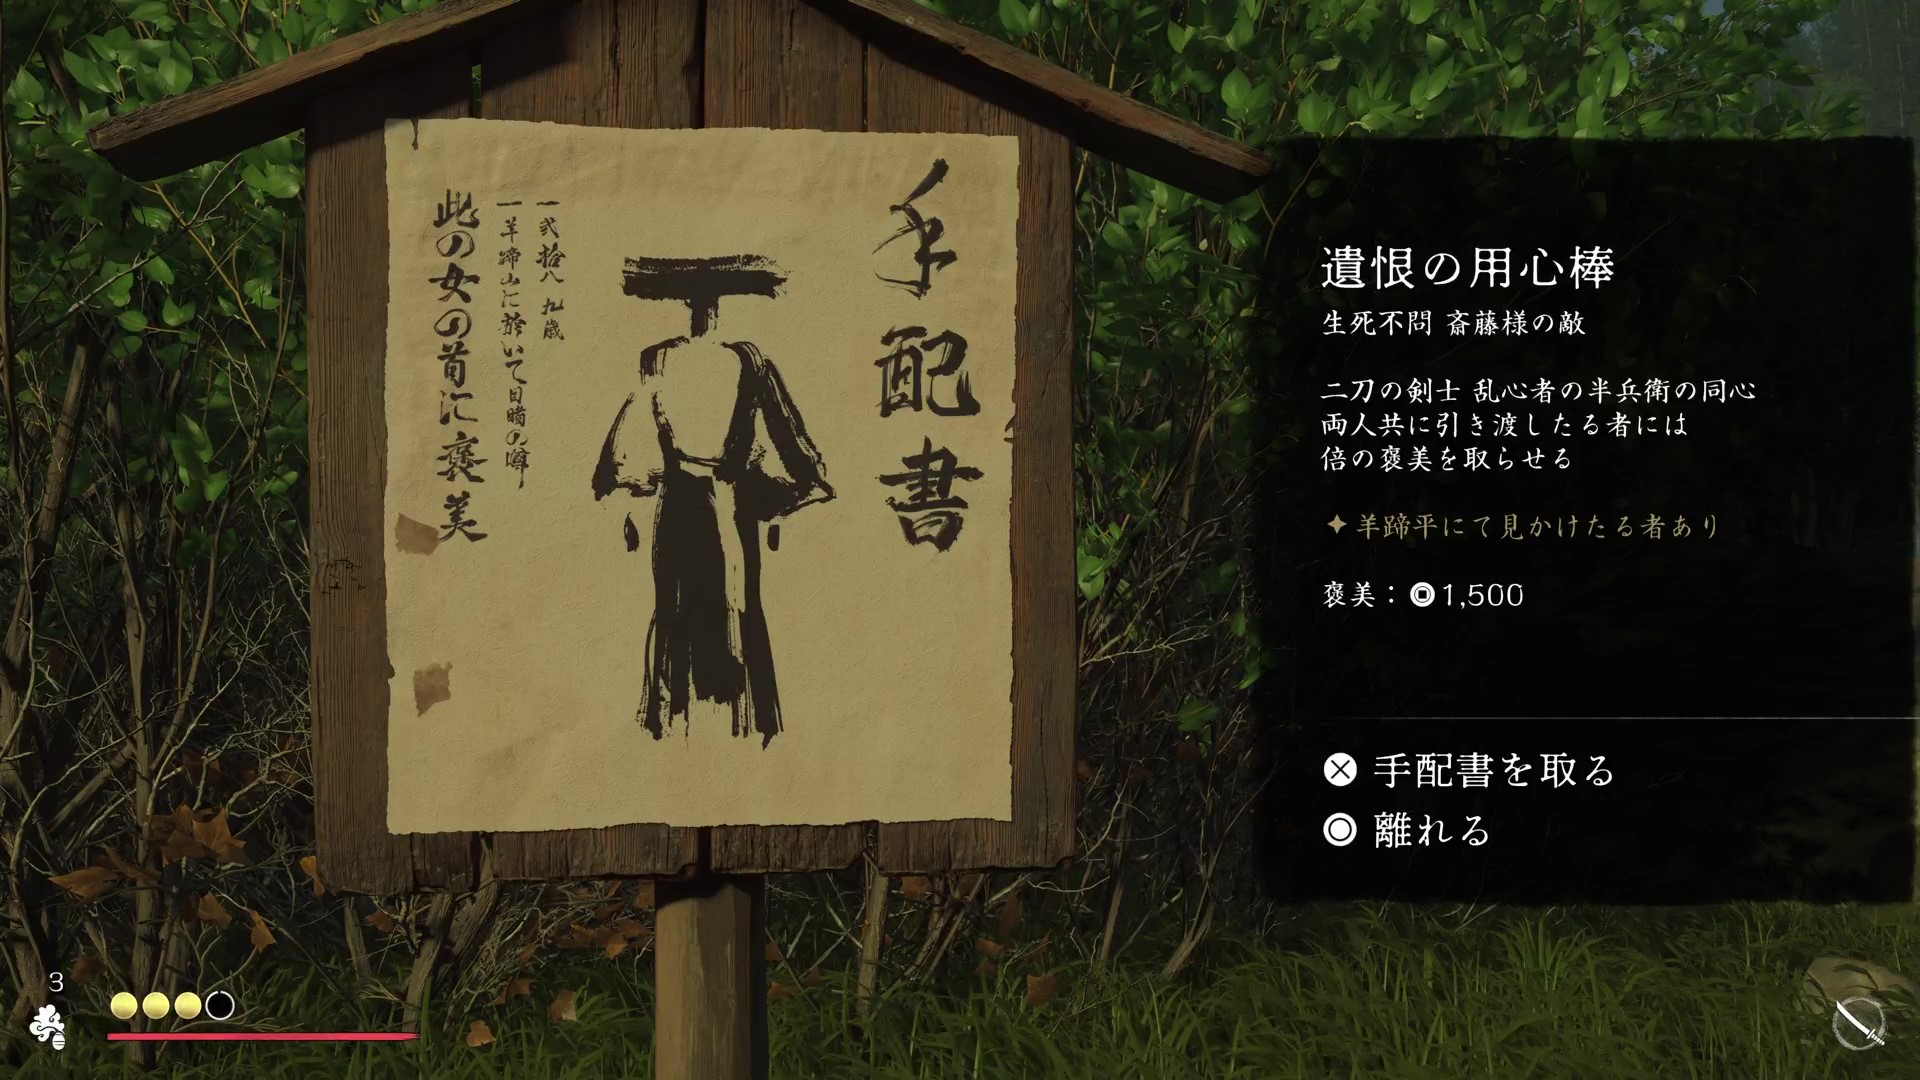 手配書
一 弐拾八 九歳
一 羊蹄山に於いて目睹の噂
此の女の首に褒美
遺恨の用心棒
生死不問 斎藤様の敵
二刀の剣士 乱心者の半兵衛の同心
両人共に引き渡したる者には
倍の褒美を取らせる
羊蹄平にて見かけたる者あり
褒美：1,500
手配書を取る
離れる
3